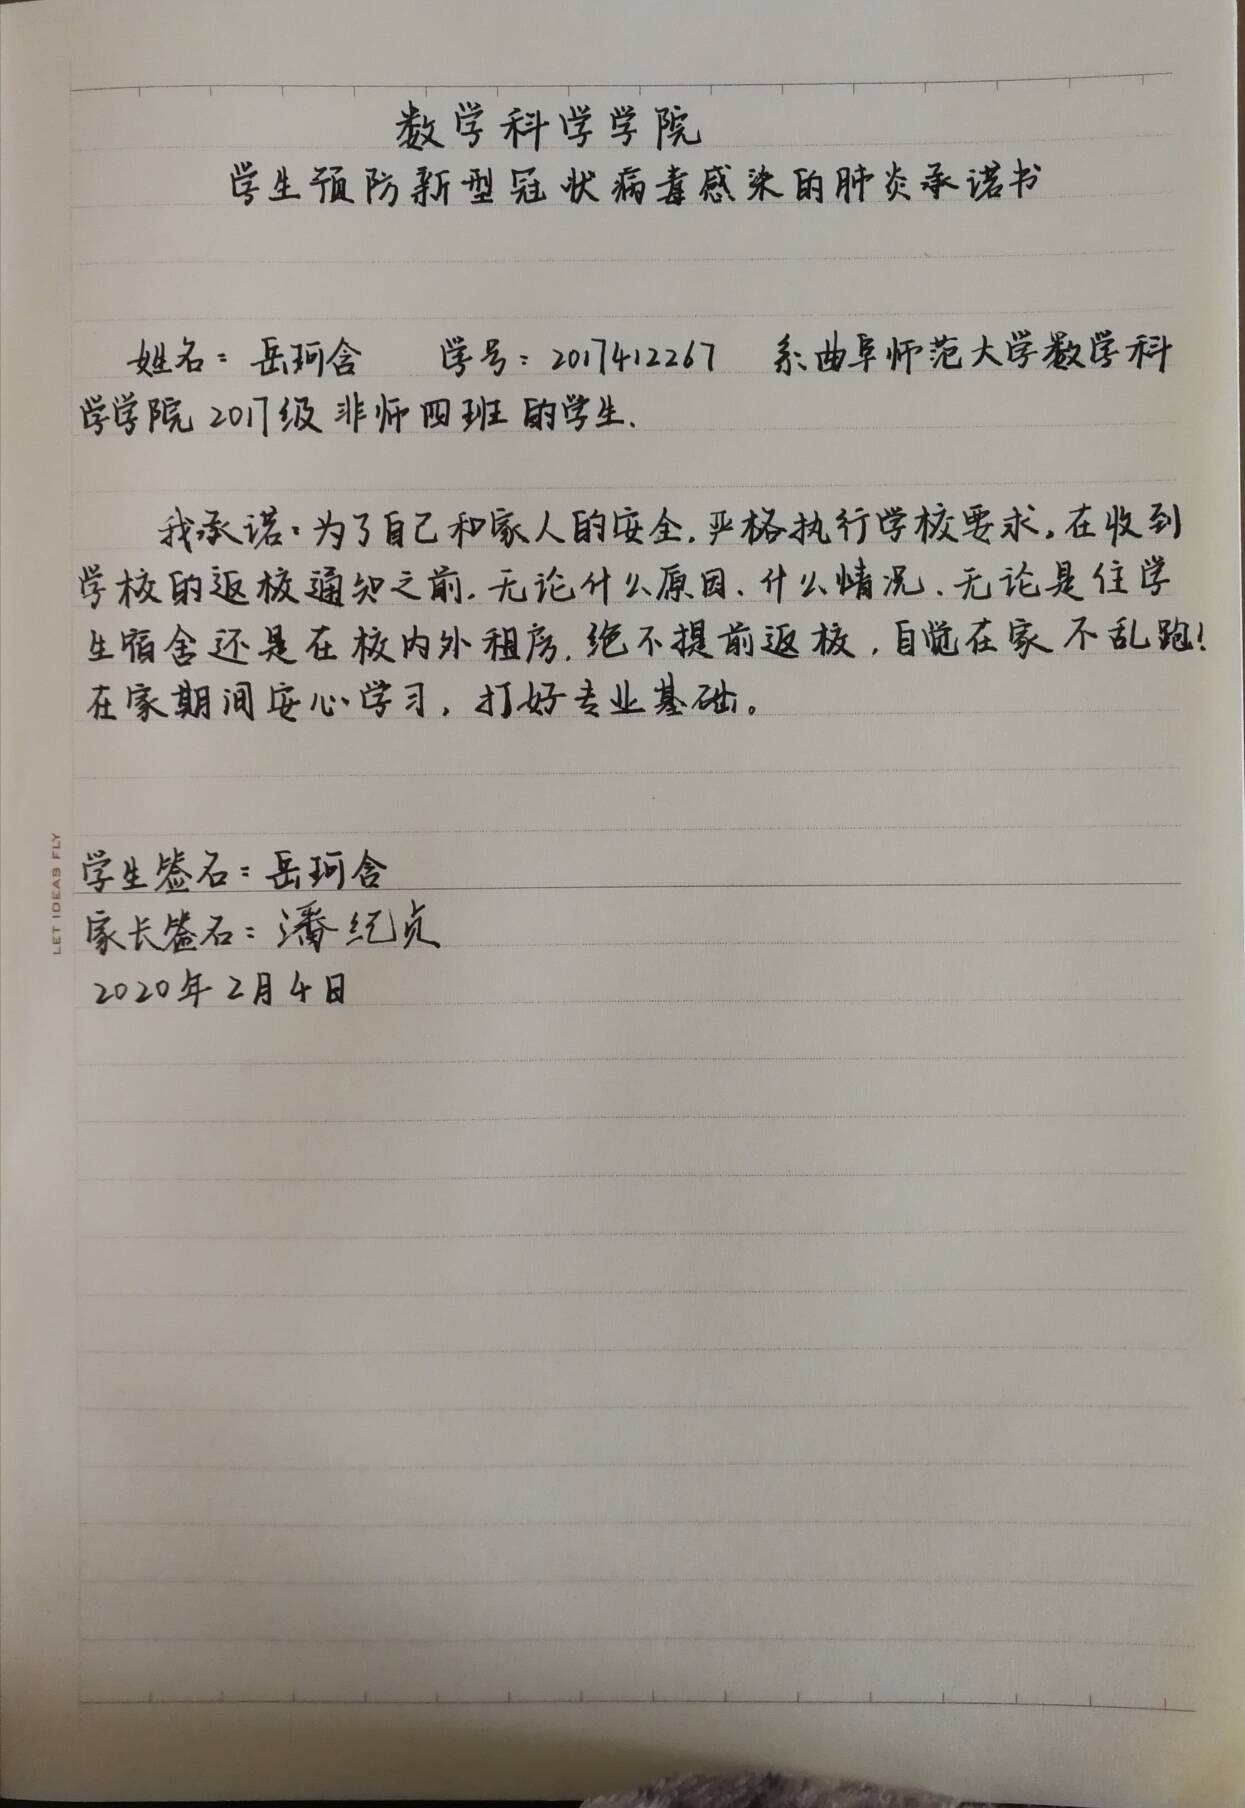 数学科学学院
学生预防新型冠状病毒感染的肺炎承诺书
姓名：岳珂含 学号：2017412267 系曲阜师范大学数学科
学学院2017级非师四班的学生.
我承诺：为了自己和家人的安全,严格执行学校要求。在收到
学校的返校通知之前,无论什么原因、什么情况、无论是住学
生宿舍还是在校内外租房,绝不提前返校,自觉在家不乱跑!
在家期间安心学习,打好专业基础。
学生签名：岳珂含
家长签名：潘纪贞
2020年2月4日
LET IDEAS FLY